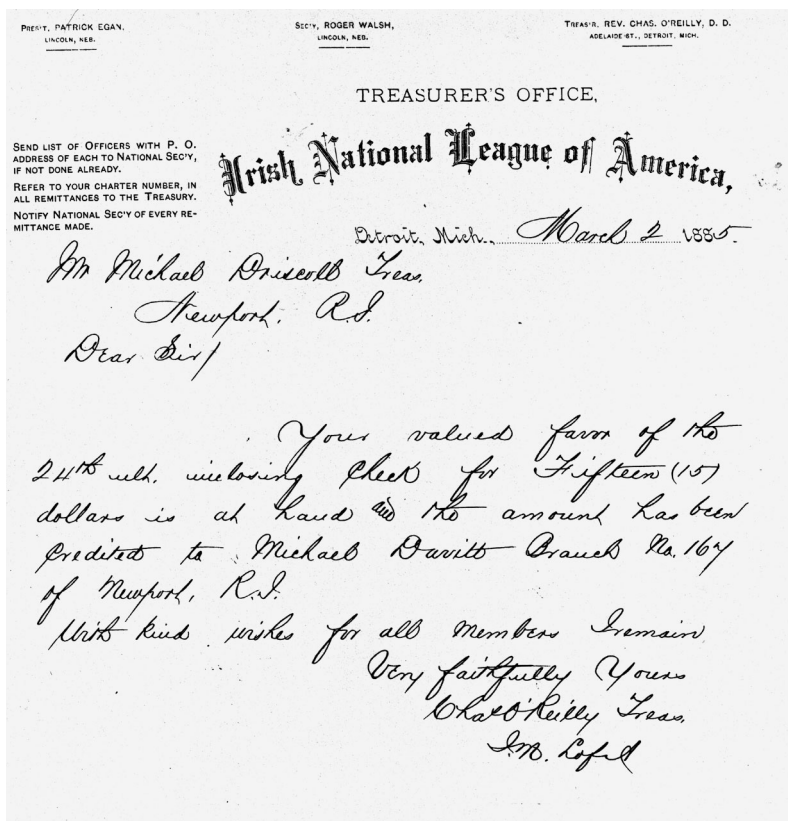 PRES'T, PATRICK EGAN,
LINCOLN, NEB.
SEC'Y, ROGER WALSH,
LINCOLN, NEB.
TREAS'R. REV. CHAS. O'REILLY, D. D.
ADELAIDE ST., DETROIT, MICH.
TREASURER'S OFFICE,
Irish National League of America,
SEND LIST OF OFFICERS WITH P. O.
ADDRESS OF EACH TO NATIONAL SEC'Y,
IF NOT DONE ALREADY.
REFER TO YOUR CHARTER NUMBER, IN
ALL REMITTANCES TO THE TREASURY.
NOTIFY NATIONAL SEC'Y OF EVERY RE-
MITTANCE MADE.
Detroit, Mich., March 2 1885.
Mr Michael Driscoll Treas.
Newport, R.I.
Dear Sir/
Your valued favor of the
24th ult. inclosing Check for Fifteen (15)
dollars is at hand and the amount has been
credited to Michael Davitt Branch No. 167
of Newport, R.I.
With kind wishes for all members I remain
Very faithfully Yours
Chas O'Reilly Treas.